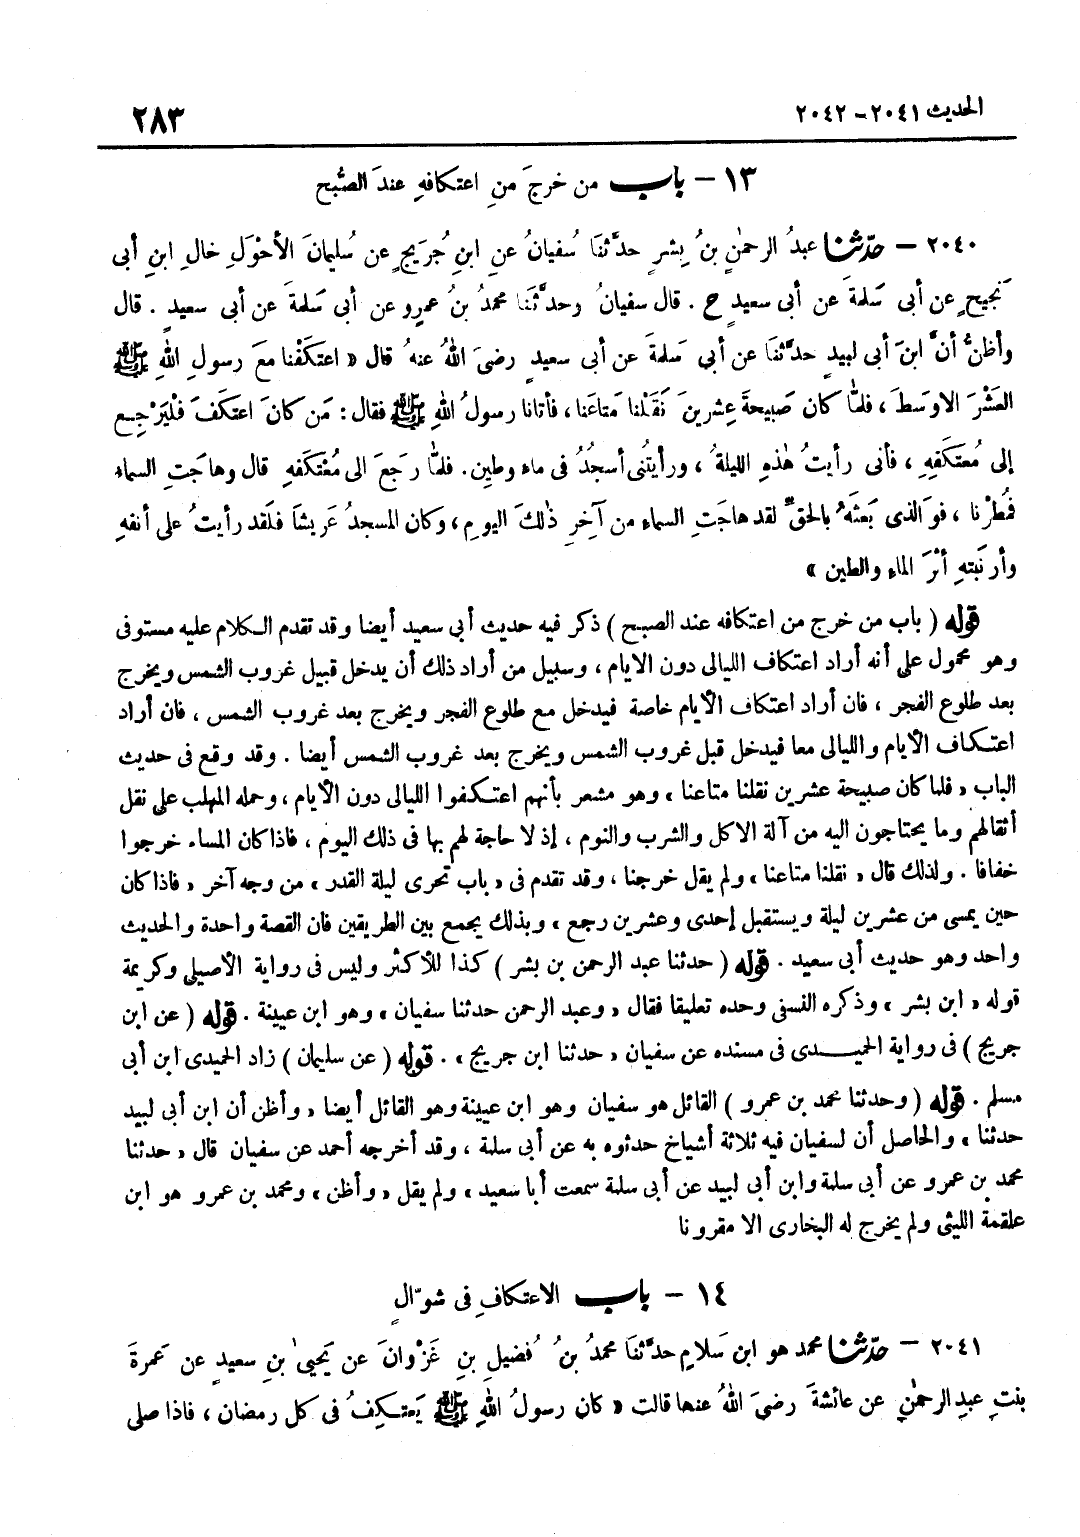 الحديث ٢٠٤١ - ٢٠٤٢ ٢٨٣
١٣ - باب من خرجَ منِ اعتكافهِ عندَ الصُّبح
٢٠٤٠ - حدّثنا عبدُ الرحمٰنِ بنُ بِشرٍ حدَّثنَا سُفيانُ عنِ ابنِ جُرَيجٍ عن سُليمانَ الأحْوَلِ خالِ ابنِ أبى
نَجيحٍ عن أبى سَلمةَ عن أبى سعيدٍ ح . قال سفيانُ وحدَّثَنا محمدُ بنُ عمرٍو عن أبى سَلمةَ عن أبى سعيدٍ . قال
وأظنُّ أنَّ ابنَ أبى لبيدٍ حدَّثنَا عن أبى سَلمةَ عن أبى سعيدٍ رضىَ اللهُ عنهُ قال « اعتكَفْنا معَ رسولِ اللهِ ﷺ
العَشْرَ الاوسَطَ ، فلمّا كان صَبيحةَ عِشرينَ نَقَلْنا مَتاعَنا ، فأتانا رسولُ اللهِ ﷺ فقال : مَن كانَ اعتكَفَ فلْيَرْجِع
إلى مُعتكَفِهِ ، فأنى رأيتُ هٰذهِ الليلةُ ، ورأيتُنى أسجُدُ فى ماء وطين. فلمّا رجَعَ الى مُعْتكَفهِ قال وهاجَتِ السماء
فمُطِرْنا ، فوَالذى بَعثَهُ بالحقِّ لقد هاجَتِ السماء من آخِرِ ذٰلكَ اليومِ ، وكان المسجدُ عَريشاً فلَقد رأيتُ على أنفهِ
وأرنَبتهِ أثرَ الماء والطين »
قوله ( باب من خرج من اعتكافه عند الصبح ) ذكر فيه حديث أبى سعيد أيضا وقد تقدم الكلام عليه مستوفى
وهو محمول على أنه أراد اعتكاف الليالى دون الايام ، وسبيل من أراد ذلك أن يدخل قبيل غروب الشمس ويخرج
بعد طلوع الفجر ، فان أراد اعتكاف الأيام خاصة فيدخل مع طلوع الفجر ويخرج بعد غروب الشمس ، فان أراد
اعتكاف الأيام والليالى معا فيدخل قبل غروب الشمس ويخرج بعد غروب الشمس أيضا . وقد وقع فى حديث
الباب « فلما كان صبيحة عشرين نقلنا متاعنا » وهو مشعر بأنهم اعتكفوا الليالى دون الأيام ، وحمله المهلب على نقل
أثقالهم وما يحتاجون اليه من آلة الاكل والشرب والنوم ، إذ لا حاجة لهم بها فى ذلك اليوم ، فاذا كان المساء خرجوا
خفافا . ولذلك قال « نقلنا متاعنا » ولم يقل خرجنا ، وقد تقدم فى « باب تحرى ليلة القدر » من وجه آخر « فاذا كان
حين يمسى من عشرين ليلة ويستقبل إحدى وعشرين رجع » وبذلك يجمع بين الطريقين فان القصة واحدة والحديث
واحد وهو حديث أبى سعيد . قوله ( حدثنا عبد الرحمن بن بشر ) كذا للأكثر وليس فى رواية الأصيلى وكريمة
قوله « ابن بشر » وذكره النسفى وحده تعليقا فقال « وعبد الرحمن حدثنا سفيان » وهو ابن عيينة . قوله ( عن ابن
جريج ) فى رواية الحميدى فى مسنده عن سفيان « حدثنا ابن جريج » . قوله ( عن سليمان ) زاد الحميدى ابن أبى
مسلم . قوله ( وحدثنا محمد بن عمرو ) القائل هو سفيان وهو ابن عيينة وهو القائل أيضا « وأظن أن ابن أبى لبيد
حدثنا » والحاصل أن لسفيان فيه ثلاثة أشياخ حدثوه به عن أبى سلمة ، وقد أخرجه أحمد عن سفيان قال « حدثنا
محمد بن عمرو عن أبى سلمة وابن أبى لبيد عن أبى سلمة سمعت أبا سعيد » ولم يقل « وأظن » ومحمد بن عمرو هو ابن
علقمة الليثى ولم يخرج له البخارى الا مقرونا
١٤ - باب الاعتكافِ فى شوّالٍ
٢٠٤١ - حدّثنا محمد هو ابن سَلامٍ حدَّثنَا محمدُ بنُ فُضيلِ بنِ غَزْوانَ عن يَحيىٰ بنِ سعيدٍ عن عَمرةَ
بنتِ عبدِ الرحمٰنِ عن عائشةَ رضىَ اللهُ عنها قالت « كان رسولُ اللهِ ﷺ يَعتكِفُ فى كل رمضان ، فاذا صلى